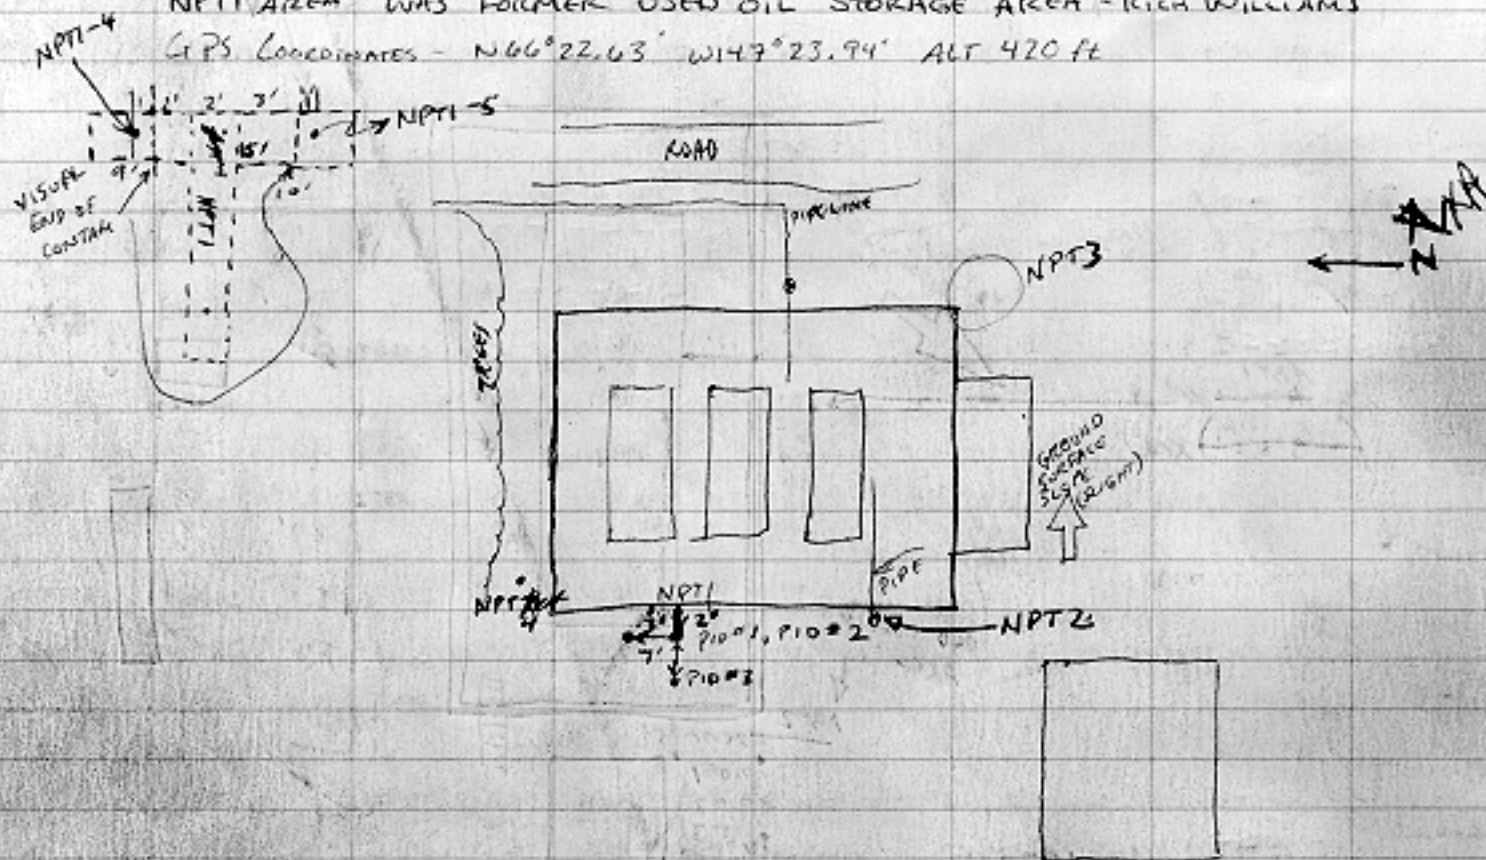 NPT1 AREA WAS FORMER USED OIL STORAGE AREA - RICH WILLIAMS
GPS COORDINATES - N66°22.63' W147°23.94' ALT 420 ft
NPT1-4
2' 3'
NPT1-5
9' 15'
10'
VISUAL
END OF
CONTAM
NPT1
ROAD
PIPELINE
NPT3
N
TREES
GROUND
SURFACE
SLOPE
(RIGHT)
PIPE
NPT1
NPT
4
2'
PID#1, PID#2
NPT2
7'
PID#3